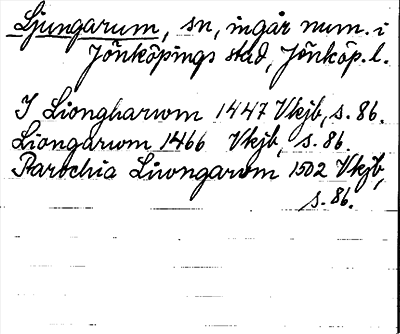 Ljungarum, sn, ingår num. i
Jönköpings stad, Jönköp. l.
I Liongharwm 1447 Vkjb, s. 86.
Liongarwm 1466 Vkjb, s. 86.
Parochia Liwngarwm 1502 Vkjb,
s. 86.